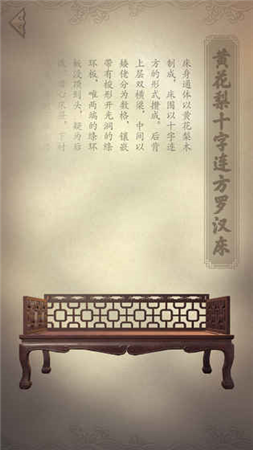 黄花梨十字连方罗汉床
床身通体以黄花梨木
制成，床围以十字连
方的形式攒成。后背
上层双横梁，中间以
矮佬分为数格，镶嵌
带有梭形开光洞的绦
环板，唯两端的绦环
没顶到头，腿为后